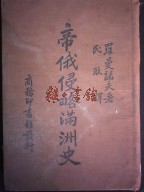 羅曼諾夫著
民耿譯
帝俄侵略滿洲史
商務印書館發行